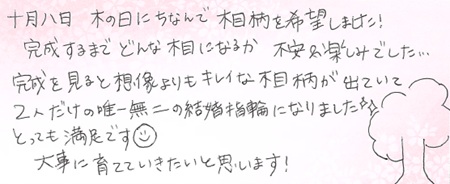 十月八日 木の日にちなんで木目柄を希望しました!
完成するまでどんな木目になるか 不安&楽しみでした…
完成を見ると想像よりもキレイな木目柄が出ていて
2人だけの唯一無二の結婚指輪になりました
とっても満足です
大事に育てていきたいと思います!